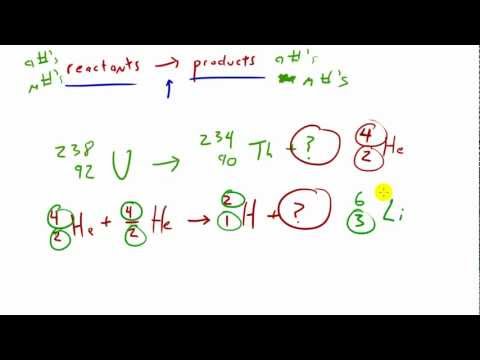 a#'s reactants → products a#'s
m#'s m#'s
238 92 U → 234 90 Th + ? 4 2 He
4 2 He + 4 2 He → 2 1 H + ? 6 3 Li